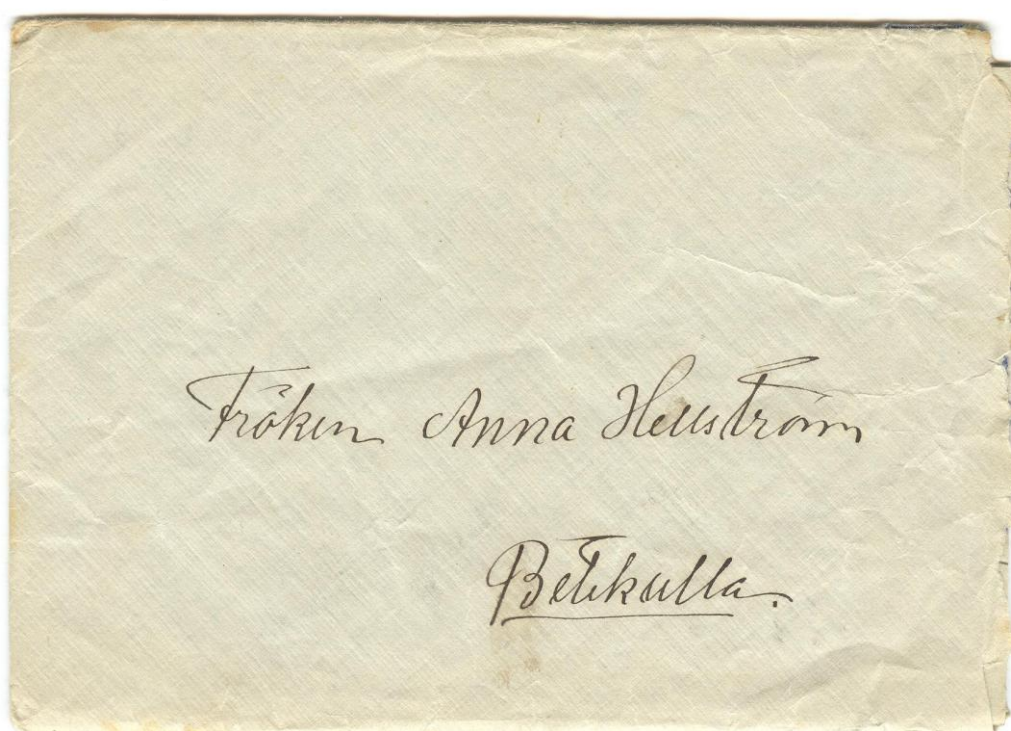 Fröken Anna Hellström
Betekulla.